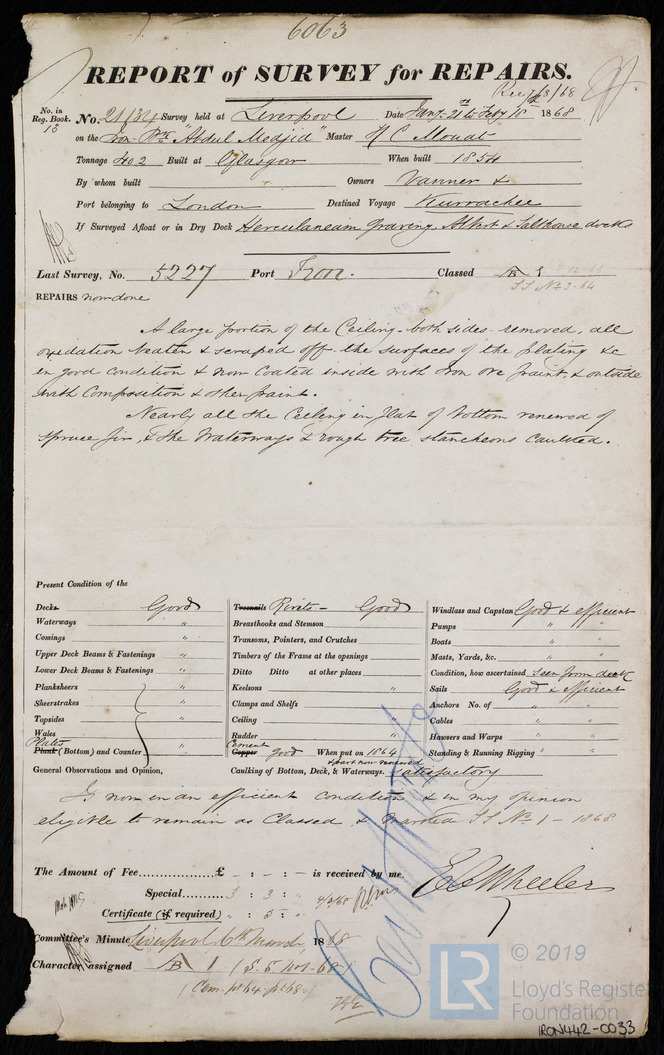 6063
REPORT of SURVEY for REPAIRS.
Rec 7/3/68
No. in Reg. Book. 13 No. 21134 Survey held at Liverpool Date Jany. 21 to Feby 18 1868
on the Iron Bk "Abdul Medjid" Master H C Mouat
Tonnage 402 Built at Glasgow When built 1854
By whom built Owners Vanner &
Port belonging to London Destined Voyage Kurrachee
If Surveyed Afloat or in Dry Dock Herculaneam Graving, Albert & Salthouse docks
Last Survey, No. 5227 Port Iron. Classed A 1
SS No 3-64
REPAIRS now done
A large portion of the Ceiling - both sides - removed, all
oxidation beaten & scraped off - the surfaces of the plating &c
in good condition & now coated inside with Iron ore paint, & outside
with Composition & other paint.
Nearly all the Ceiling in flat of bottom renewed of
Spruce fir, & the Waterways & rough tree stancheons caulked.
Present Condition of the
Decks Good Treenails Rivets - Good Windlass and Capstan Good & efficient
Waterways " Breasthooks and Stemson Pumps " "
Comings " Transoms, Pointers, and Crutches Boats " "
Upper Deck Beams & Fastenings " Timbers of the Frame at the openings Masts, Yards, &c. " "
Lower Deck Beams & Fastenings " Ditto Ditto at other places Condition, how ascertained Seen from deck
Planksheers " Keelsons " Sails Good & efficient
Sheerstrakes Clamps and Shelfs Anchors No. of "
Topsides " Ceiling " Cables " "
Wales Rudder " Hawsers and Warps " "
Plates Plank (Bottom) and Counter " Cement Copper good When put on 1864 Standing & Running Rigging " "
& part now renewed
General Observations and Opinion, Caulking of Bottom, Deck, & Waterways. Satisfactory
Is now in an efficient condition & in my opinion
eligible to remain as Classed & Marked SS No 1 - 1868
The Amount of Fee £ - : - : - is received by me,
Special 3 : 3 : " 4/3/68
Certificate (if required) " : 5 : "
E C Wheeler
Committee's Minute Liverpool 6th March 1868
Character assigned A 1 (S. S. No 1-68)
© 2019
LR
Lloyd's Register
Foundation
IRON442-0033